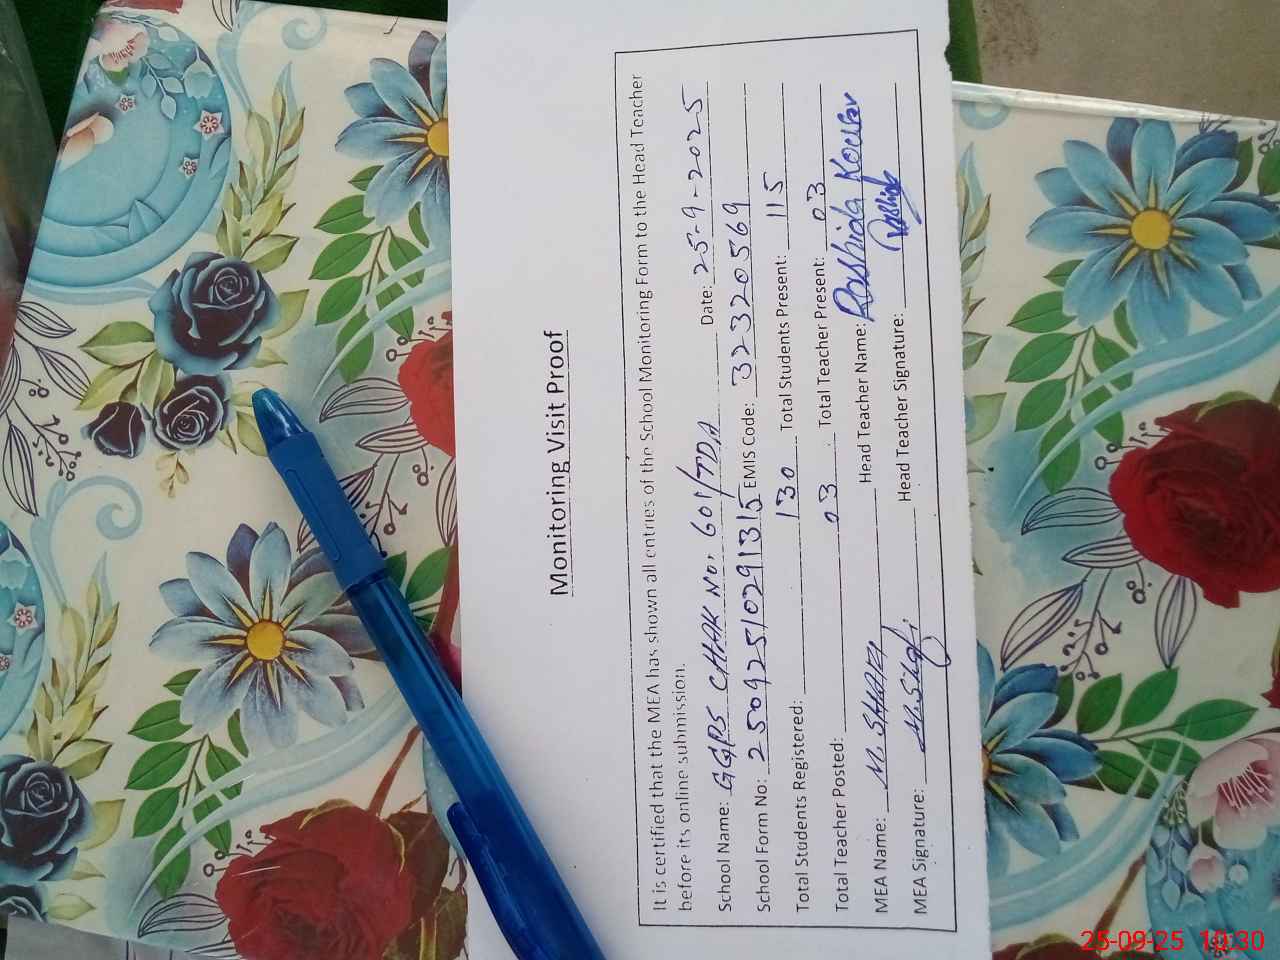 Monitoring Visit Proof
It is certified that the MEA has shown all entries of the School Monitoring Form to the Head Teacher
before its online submission.
School Name: GGPS CHAK No. 601/TDA Date: 25-9-2025
School Form No: 25092510291315 EMIS Code: 32320569
Total Students Registered: 130 Total Students Present: 115
Total Teacher Posted: 03 Total Teacher Present: 03
MEA Name: M. SHAFI Head Teacher Name: Rashida Kousar
MEA Signature: M. Shafi Head Teacher Signature:
25-09-25 10:30